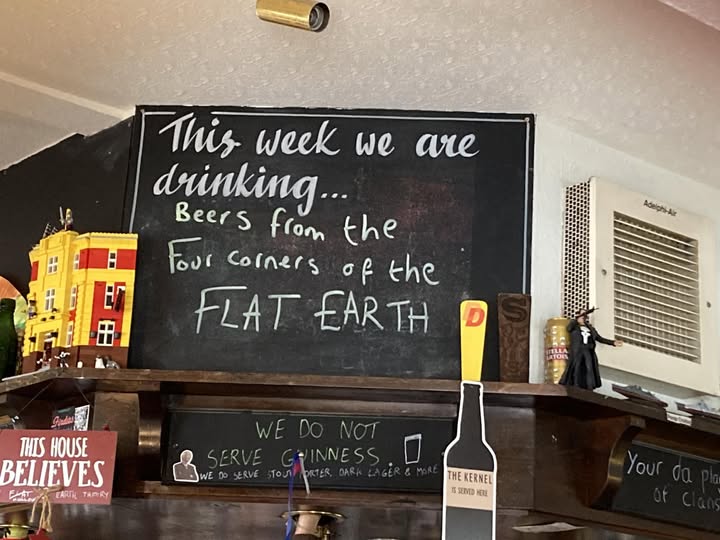 This week we are
drinking...
Beers from the
Four corners of the
FLAT EARTH
Adelphi-Air
STELLA
ARTOIS
D
WE DO NOT
SERVE GUINNESS.
WE DO SERVE STOUT, PORTER, DARK LAGER & MORE
THIS HOUSE
BELIEVES
FLAT EARTH
THE KERNEL
IS SERVED HERE
Your da
of